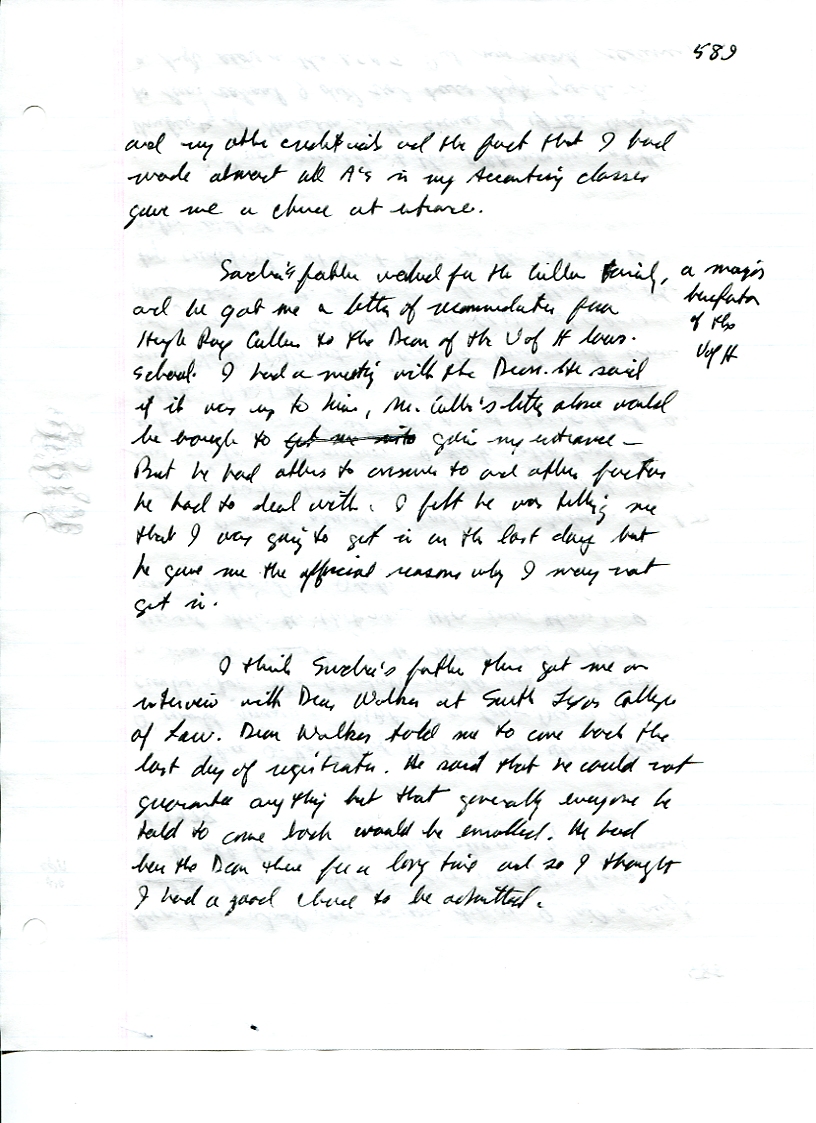 589
and my other credentials and the fact that I had
made almost all A's in my Accounting classes
gave me a chance at entrance.
father worked for the Cullen family, a major
benefactor
of the
U of H
and he got me a letter of recommendation from
Hugh Roy Cullen to the Dean of the U of H law
school. I had a meeting with the Dean. He said
if it was up to him, Mr. Cullen's letter alone would
be enough to get me into gain my entrance –
But he had others to answer to and other factors
he had to deal with. I felt he was telling me
that I was going to get in on the last day but
he gave me the official reasons why I may not
get in.
I think father then got me an
interview with Dean Walker at South Texas College
of Law. Dean Walker told me to come back the
last day of registration. He said that he could not
guarantee anything but that generally everyone he
told to come back would be enrolled. He had
been the Dean there for a long time and so I thought
I had a good chance to be admitted.